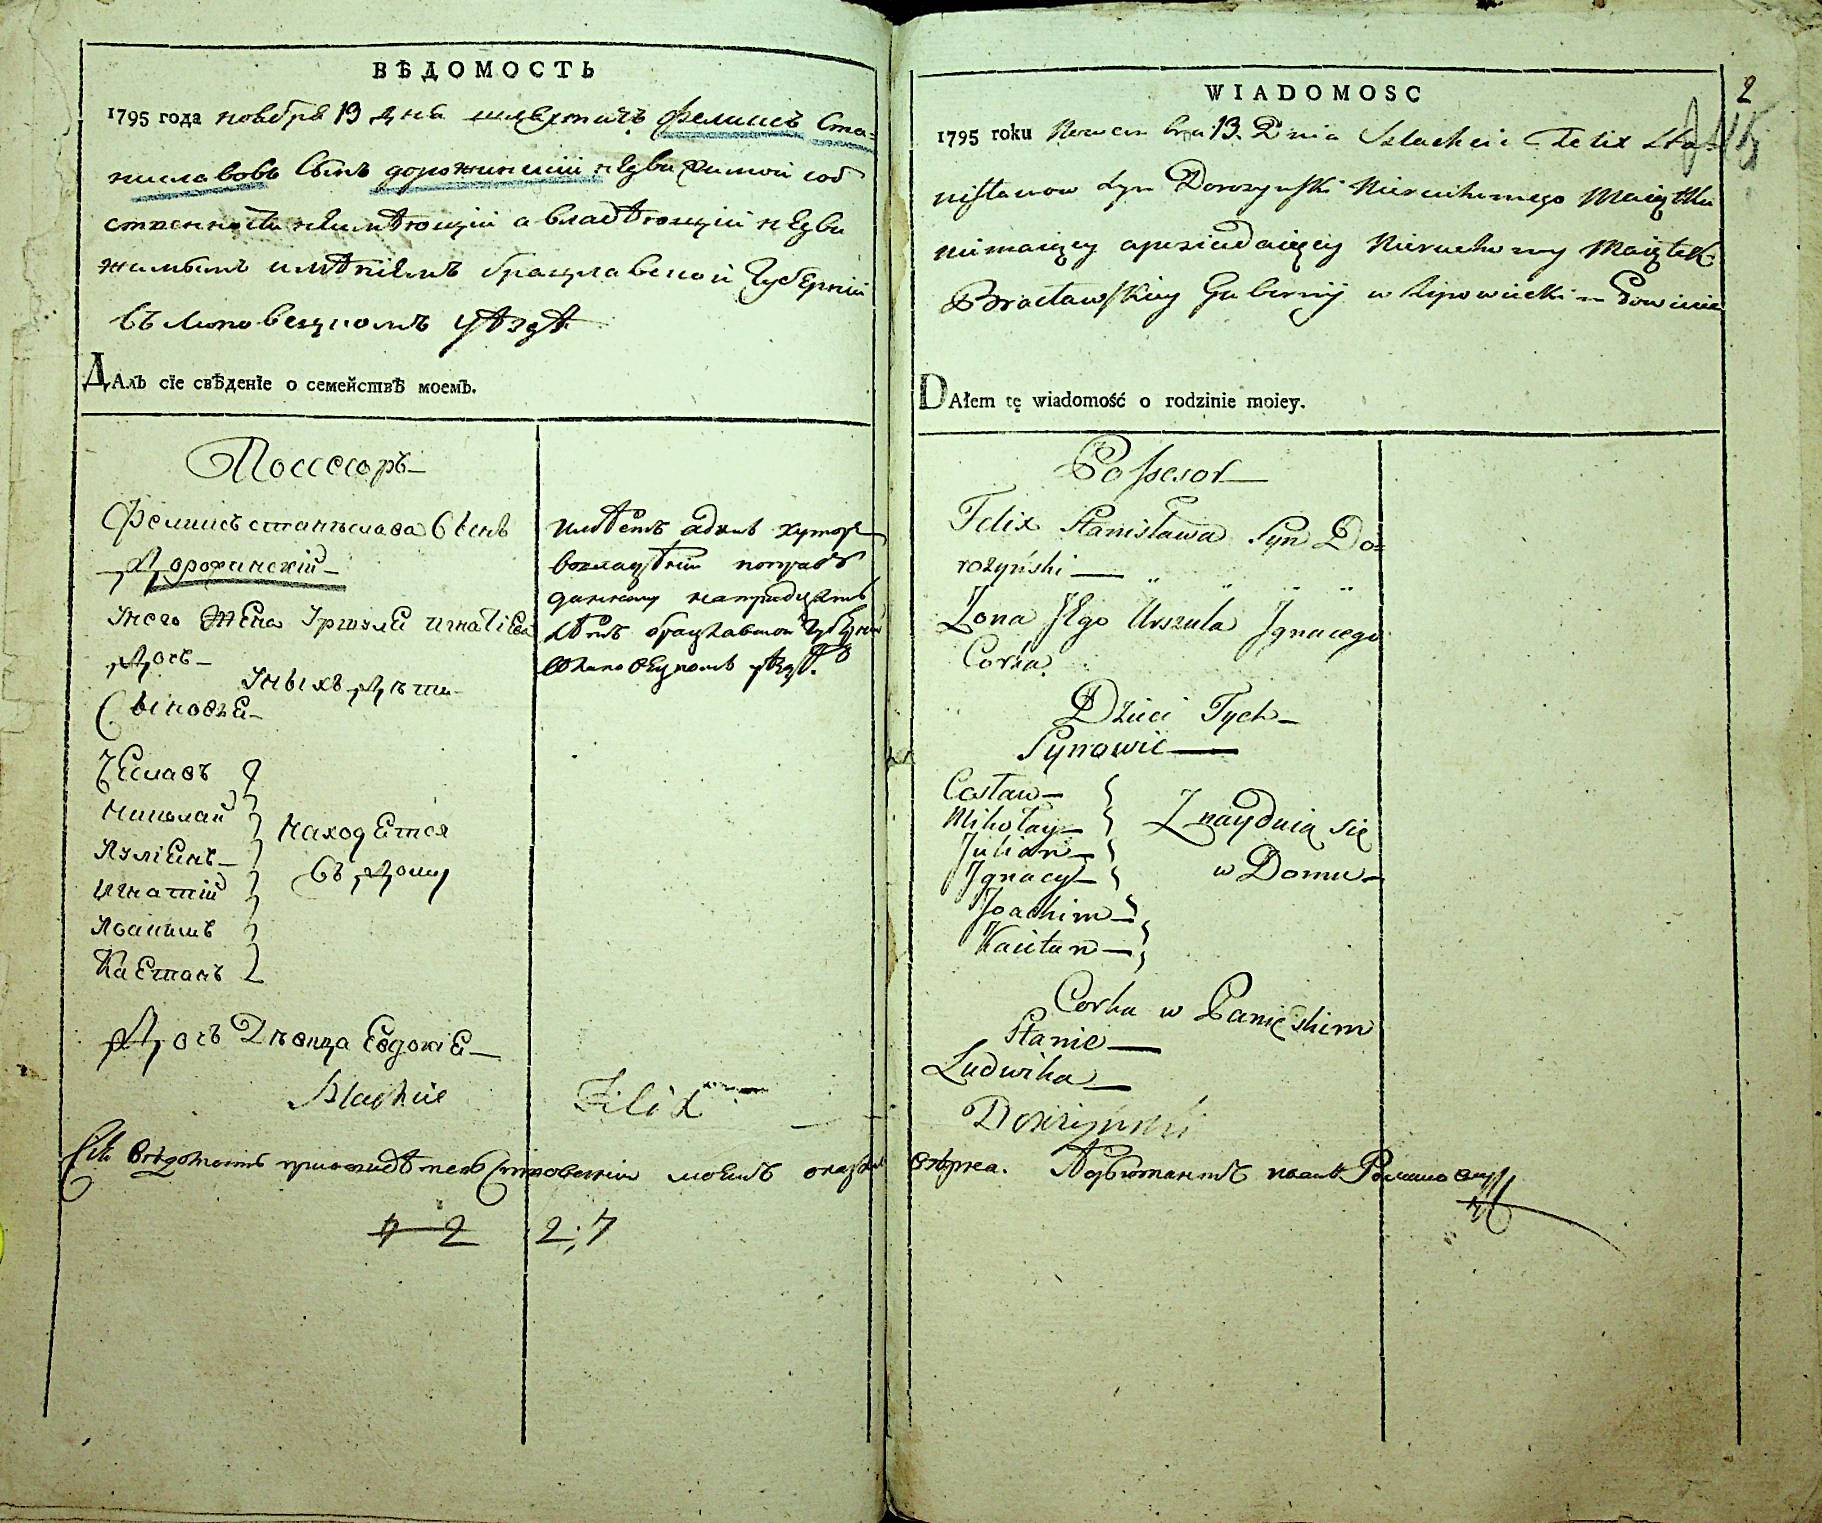 ВѢДОМОСТЬ
1795 года ноября 13 дня шляхтичъ Феликсъ Ста=
ниславовъ сынъ дорожинский недвижимой соб
ственности неимѣющий а владѣющий недви
жимымъ имѣниемъ брацлавской губернии
въ липовецкомъ уѣздѣ
ДАлъ сїе свѣденїе о семействѣ моемъ.
Поссесоръ
Феликсъ станислава сынъ
Дорожинский
Унего жена Уршуля игнатиева
Дочь
Уныхъ дѣти
Сыновья
Чеславъ
Николай
Юлиенъ
Игнатий
Якимъ
Каетанъ
Находетея
въ дому
Дочь Дѣвица
имѣетъ адинъ хуторъ
поправѣ
данному
лѣтъ брацлавской губернии
влиповецкомъ уѣздѣ.
Szlachcic Felix
WIADOMOSC
2
1795 roku Nowembra 13. Dnia Szlachcic Felix Sta=
nisławow Syn Dorozynski Nieruchomego Maiątku
nimaiący aposiadaiący Nieruchomy Maiątek
Bracławskiey Gubernij w Lipowieckim Powiecie
DAłem tę wiadomość o rodzinie moiey.
Possesor
Felix Stanisława Syn Do=
rożyński
Zona Jego Urszula Jgnacego
Corka
Dzieci Tych
Synowie
Cesław
Mikołay
Julian
Jgnacy
Joachim
Kaietan
Znayduią się
w Domu
Corka w Panięskim
Stanie
Ludwika
Dorożynski
2 2:7